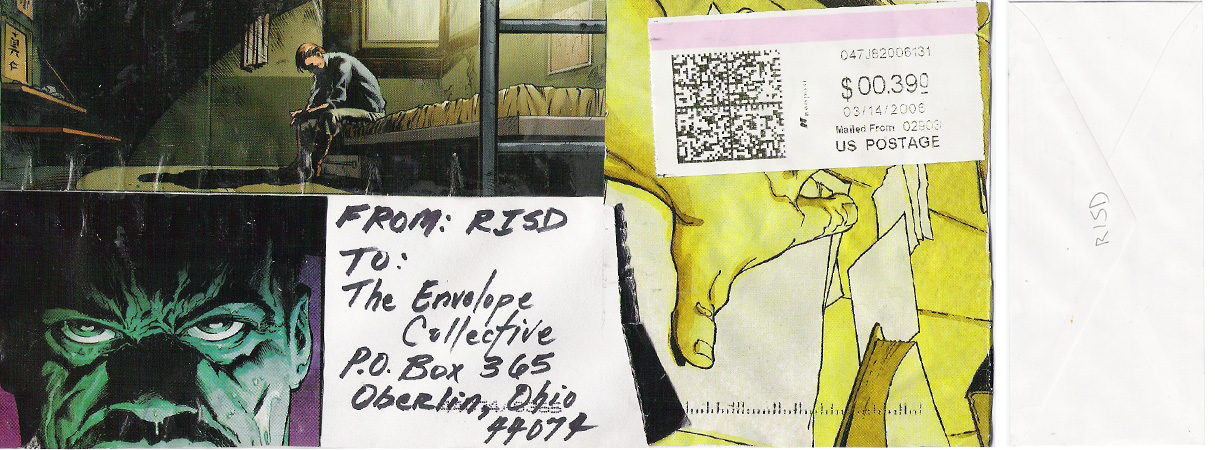 047J82006131
$00.390
03/14/2006
Mailed From 02903
US POSTAGE
FROM: RISD
TO:
The Envelope
Collective
P.O. Box 365
Oberlin, Ohio
44074
RISD